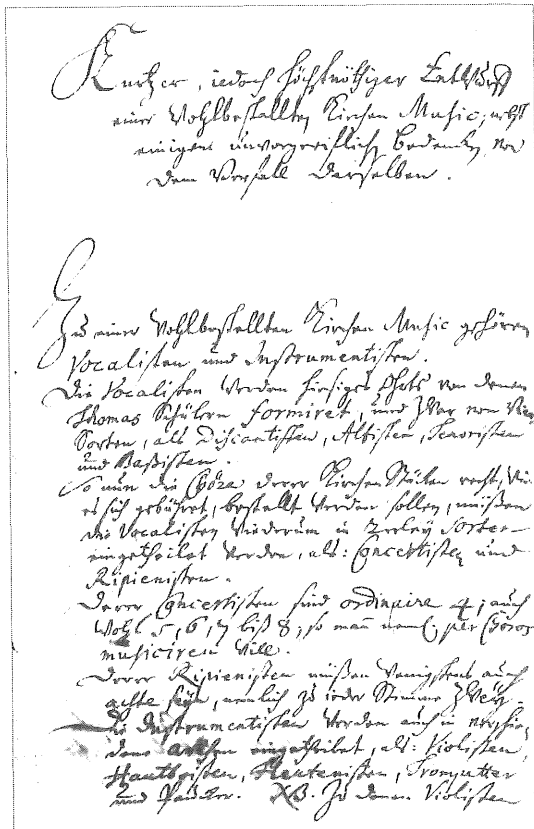 Kurtzer, iedoch höchstnöthiger Entwurff
einer wohlbestallten Kirchen Music; nebst
einigem unvorgreiflichen Bedencken von
dem Verfall derselben.
Zu einer wohlbestallten Kirchen Music gehören
Vocalisten und Instrumentisten.
Die Vocalisten werden hiesiges Ohrts von denen
Thomas Schülern formiret, und zwar von vier
Sorten, als Discantisten, Altisten, Tenoristen
und Baßisten.
So nun die Chöre derer Kirchen Stücken recht, wie
es sich gebühret, bestellt werden sollen, müßen
die Vocalisten wiederum in 2erley Sorten
eingetheilet werden, als: Concertisten und
Ripienisten.
Derer Concertisten sind ordinaire 4; auch
wohl 5, 6, 7 biß 8; so mann nemlich per Choros
musiciren will.
Derer Ripienisten müßen wenigstens auch
achte seyn, nemlich zu ieder Stimme zwey.
Die Instrumentisten werden auch in verschie-
dene Arthen eingetheilet, als: Violisten,
Hautboisten, Fleutenisten, Trompetter
und Paucker. NB. Zu denen Violisten